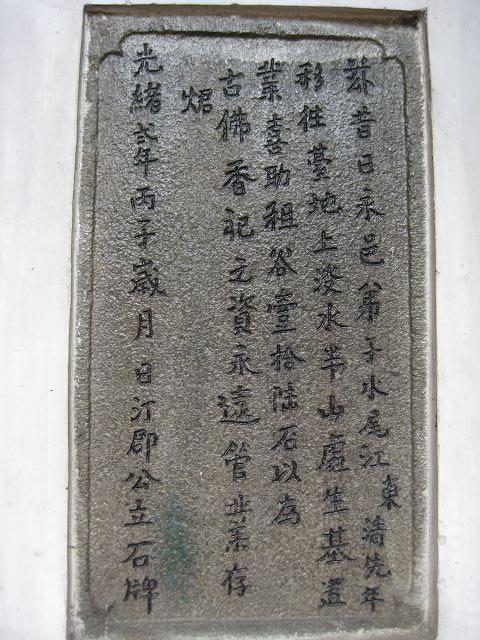 昔日永邑弟子水尾江東濤先年
移徃臺地上淡水半山處生基置
業喜助租谷壹拾陸石以為
古佛香祀之資永遠管業存
光緒弍年丙子歲月日汀郡公立石牌